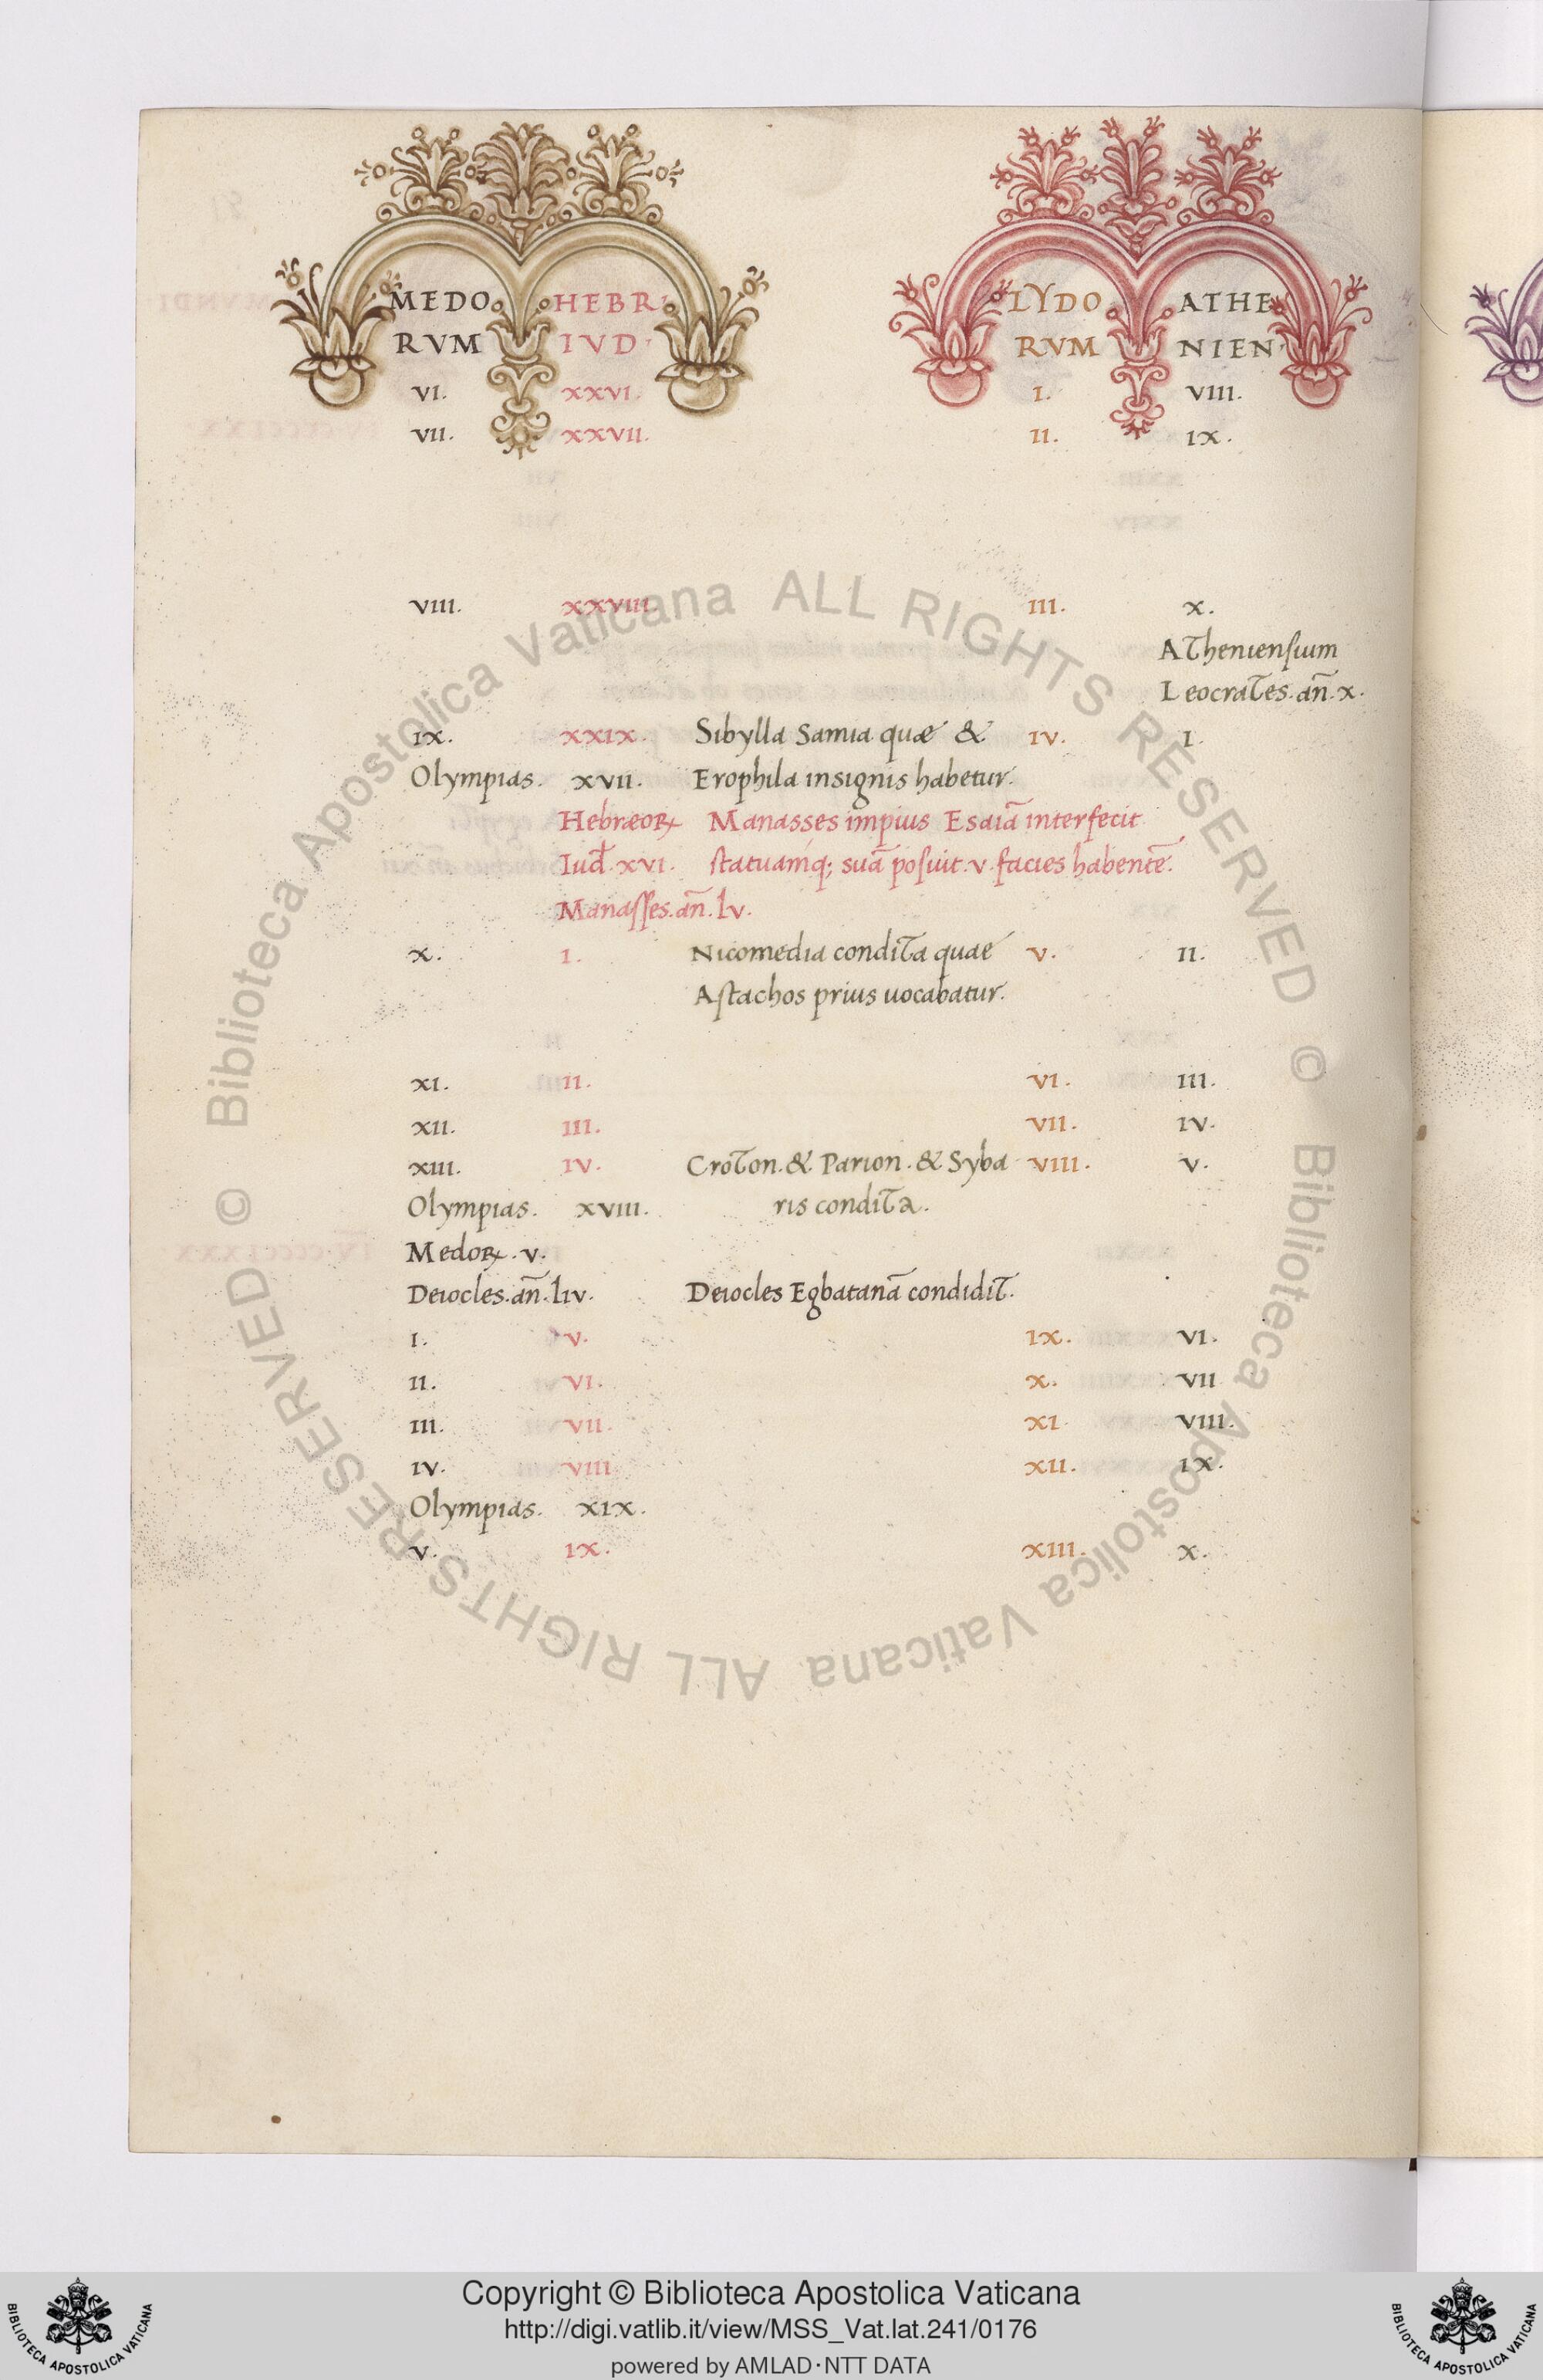 MEDO HEBR· LYDO ATHE
RVM IVD· RVM NIEN·
VI. XXVI. I. VIII.
VII. XXVII. II. IX.
VIII. XXVIII. III. X.
Atheniensium
Leocrates. an̄. x.
IX. XXIX. Sibylla Samia quae & IV. I.
Olympias. XVII. Erophila insignis habetur.
Hebræoꝝ Manasses impius Esaiā interfecit
Iud. XVI. statuamq; suā posuit. v. facies habentē.
Manasses. an̄. lv.
X. I. Nicomedia condita quae V. II.
Astachos prius uocabatur.
XI. II. VI. III.
XII. III. VII. IV.
XIII. IV. Croton. & Parion. & Syba VIII. V.
Olympias. XVIII. ris condita.
Medoꝝ. v.
Deiocles. an̄. lıv. Deiocles Egbatanā condidit.
I. V. IX. VI.
II. VI. X. VII
III. VII. XI VIII.
IV. VIII XII. IX.
Olympias. XIX.
V. IX. XIII. X.
© Biblioteca Apostolica Vaticana ALL RIGHTS RESERVED © Biblioteca Apostolica Vaticana ALL RIGHTS RESERVED
Copyright © Biblioteca Apostolica Vaticana
http://digi.vatlib.it/view/MSS_Vat.lat.241/0176
powered by AMLAD·NTT DATA
BIBLIOTECA APOSTOLICA VATICANA
BIBLIOTECA APOSTOLICA VATICANA